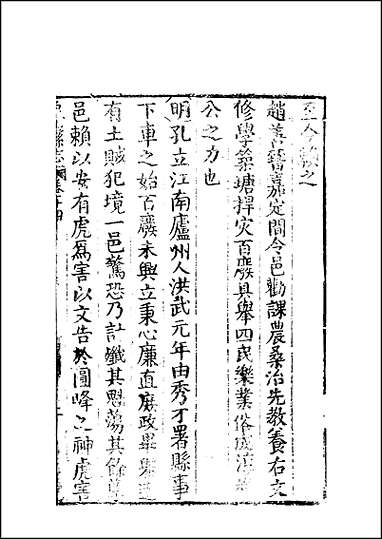 至今頌之
趙善瑨嘉定間令邑勸課農桑治先教養右文
修學築塘捍灾百廢具舉四民樂業俗成淳
公之力也
明孔立江南廬州人洪武元年由秀才署縣事
下車之始百廢未興立秉心廉直庶政畢舉
有土賊犯境一邑驚恐乃計殲其魁蕩其餘
邑賴以安有虎爲害以文告於圓峰之神虎害
縣志 卷十四